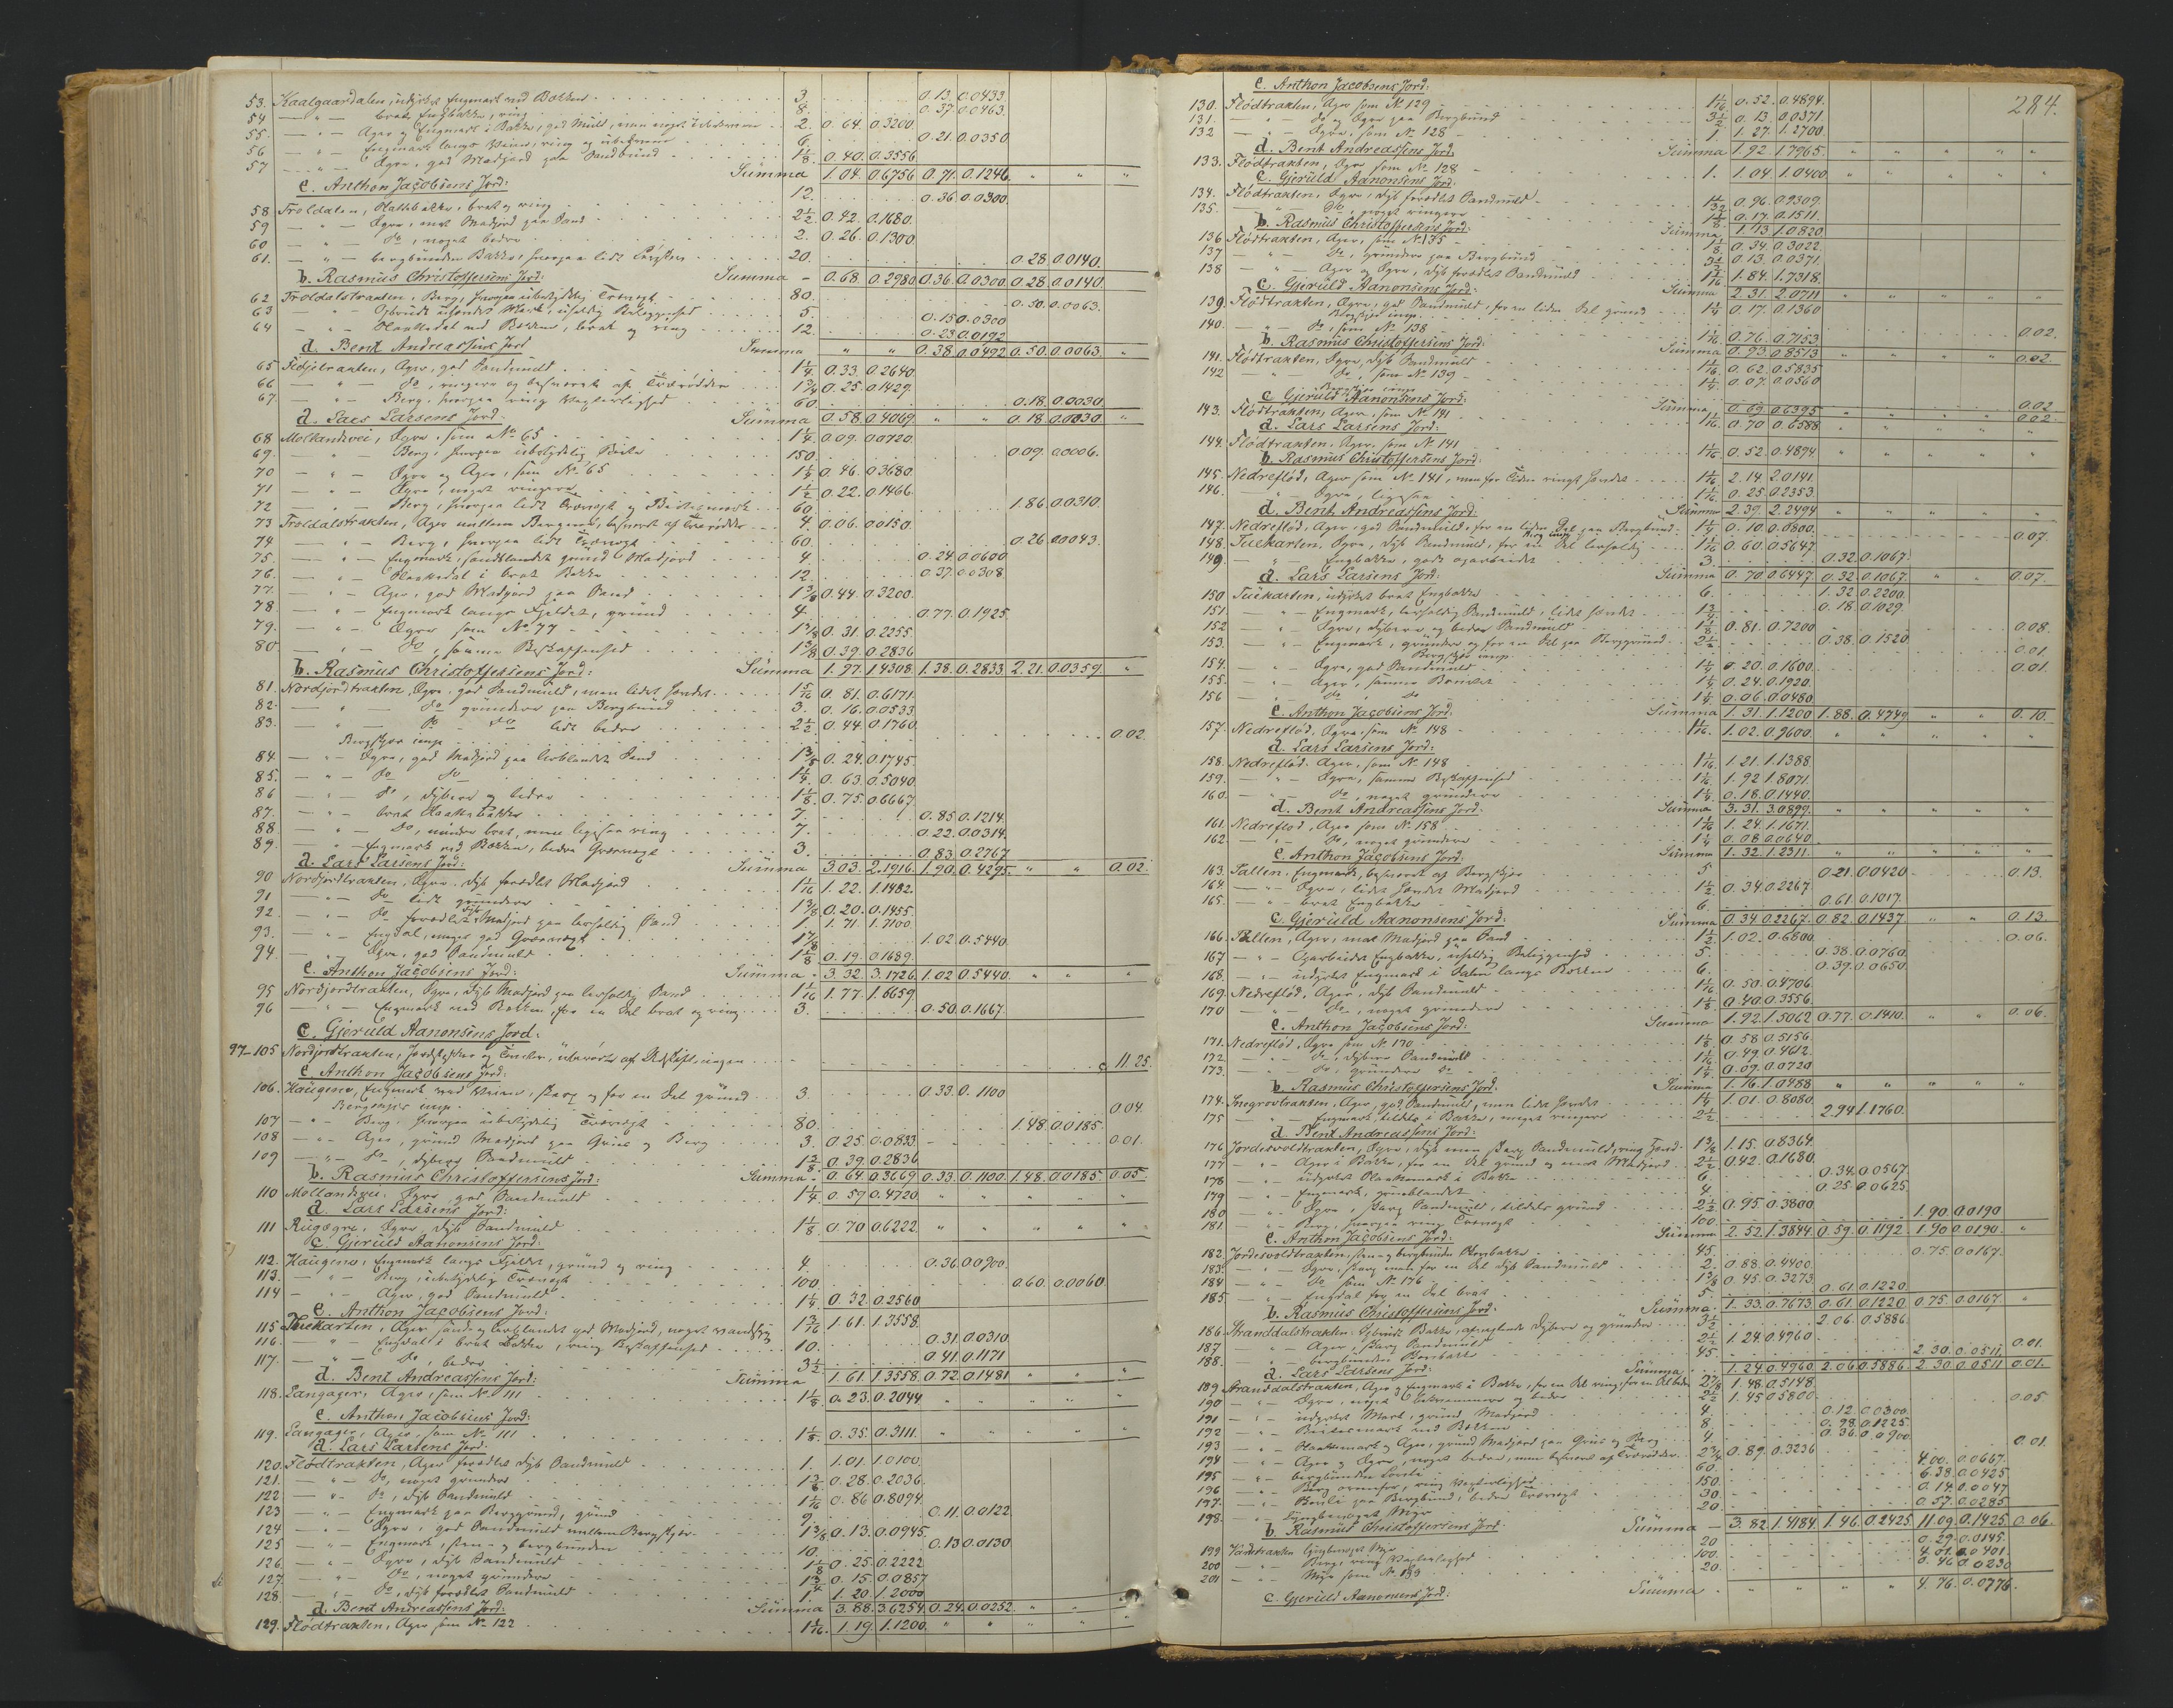 53. Kaalgaardalen, udyrket Engmark ved Bækken 3. 0.13. 0.0433.
54 — " — brat Engbakke, ring 8. 0.37. 0.0463.
55. — " — Ager og Engmark i Bakke, god Muld, men noget 2. 0.64. 0.3200.
56 — " — Engmark langs Veien, ring og 6. 0.21. 0.0350.
57 — " — Agre, god Madjord paa Sandbund 1 1/8. 0.40. 0.3556.
c. Anthon Jacobsens Jord: Summa 1.04. 0.6756 0.71. 0.1246. " " "
58 Troldalen, Slattebakke, brat og ring 12. 0.36. 0.0300.
59 — " — Agre, med Madjord paa Sand 2 1/2. 0.42. 0.1680.
60 — " — Do, noget bedre 2. 0.26. 0.1300.
61. — " — bergbunden Bakke, hvorpaa lidt 20. 0.28 0.0140.
b. Rasmus Christoffersens Jord: Summa — 0.68. 0.2980 0.36. 0.0300. 0.28. 0.0140.
62 Troldalstrakten, Berg, hvorpaa ubetydelig Trævext 80. 0.50. 0.0063.
63 — " — uheldig Beliggenhed 5. 0.15 0.0300
64 — " — Slaattedal ved Bækken, brat og ring 12. 0.23 0.0192
d. Bent Andreassens Jord Summa " " 0.38. 0.0492 0.50. 0.0063. "
65 Ager, god Sandmuld 1 1/4. 0.33. 0.2640.
66 — " — Do, ringere og besværet af Trærødder 1 3/4. 0.25. 0.1429.
67. — " — Berg, hvorpaa ring Væxterlighed 60. 0.18. 0.0030.
a. Lars Larsens Jord: Summa 0.58. 0.4069. " " 0.18. 0.0030. "
68 Mollandsvei, Agre, som No 65 1 1/4. 0.09. 0.0720.
69. — " — Berg, hvorpaa ubetydelig Beite 150. 0.09. 0.0006.
70 — " — Agre og Ager, som No 65 1 1/4. 0.46. 0.3680.
71 — " — Agre, noget ringere 1 1/2. 0.22. 0.1466.
72 — " — Berg, hvorpaa lidt Trævext og 60. 1.86. 0.0310.
73 Troldalstrakten, Ager mellem Bergene, besværet af Trærødder 4. 0.06. 0.0150.
74 — " — Berg, hvorpaa lidt Trævext 60. 0.26 0.0043.
75. — " — Engmark, sandblandet grund Madjord 4. 0.24. 0.0600.
76. — " — Slaattedal i brat Bakke 12. 0.37. 0.0308
77. — " — Ager, god Madjord paa Sand 1 3/8 0.44. 0.3200.
78. — " — Engmark langs Fjeldet, grund 4. 0.77. 0.1925.
79. — " — Agre som No 77 1 3/8 0.31. 0.2255.
80 — " — Do, samme Beskaffenhed 1 3/8 0.39. 0.2836
b. Rasmus Christoffersens Jord: Summa 1.97. 1.4308. 1.38. 0.2833. 2.21. 0.0359. "
81. Nordjordtrakten, Agre, god Sandmuld, men lidet 1 5/16 0.81. 0.6171.
82. — " — Do grundere paa Bergbund 3. 0.16. 0.0533.
83. — " — Do Do lidt bedre 2 1/2. 0.44. 0.1760.
Bergskjær imp. 0.02.
84. — " — Agre, god Madjord paa leerblandet Sand 1 3/8 0.24. 0.1745.
85. — " — Do Do 1 1/4. 0.63. 0.5040.
86 — " — Do, dybere og bedre 1 1/8 0.75. 0.6667.
87. — " — brat Slaattebakke 7. 0.85. 0.1214.
88 — " — Do, mindre brat, men ligesaa ring 7. 0.22. 0.0314.
89. — " — Engmark ved Bækken, bedre Græsvext 3. 0.83. 0.2767.
a. Lars Larsens Jord: Summa 3.03. 2.1916. 1.90. 0.4295. " " 0.02.
90 Nordjordtrakten, Agre, dyb forædlet Madjord 1 1/16 1.22. 1.1482.
91 — " — Do lidt grundere 1 3/8 0.20. 0.1455.
92. — " — Do forædlet dyb Madjord paa leerholdig Sand 1. 1.71. 1.7100.
93. — " — Engdal, meget god Græsvext 1 7/8 1.02. 0.5440.
94. — " — Agre, god Sandmuld 1 1/8 0.19. 0.1689.
c. Anthon Jacobsens Jord: Summa 3.32. 3.1726. 1.02. 0.5440. " " "
95 Nordjordtrakten, Agre, dyb Madjord paa leerholdig Sand 1 1/16 1.77. 1.6659.
96 — " — Engmark ved Bækken, for en Del brat og ring 3. 0.50. 0.1667.
c. Gjeruld Aanonsens Jord:
97–105 Nordjordtrakten, 11.25.
c. Anthon Jacobsens Jord:
106. Haugene, Engmark ved Veien, skarp og for en Del grund 3. 0.33. 0.1100
Bergskjær imp. 0.04.
107 — " — Berg, hvorpaa ubetydelig Trævext 80. 1.48. 0.0185.
108 — " — Ager, grund Madjord paa Gruus og Berg 3. 0.25. 0.0833 0.01.
109 — " — Do, dybere Sandmuld 1 3/8. 0.39. 0.2836
b. Rasmus Christoffersens Jord: Summa 0.64. 0.3669 0.33. 0.1100. 1.48. 0.0185. 0.05.
110 Mollandsvei, Agre, god Sandmuld 1 1/4 0.59. 0.4720. " " " " "
a. Lars Larsens Jord:
111 Rugagre, Agre, dyb Sandmuld 1 1/8 0.70 0.6222. " " " " "
c. Gjeruld Aanonsens Jord:
112. Haugene, Engmark langs Fjeldet, grund og ring 4. 0.36. 0.0900.
113. — " — Berg, ubetydelig Trævext 100. 0.60. 0.0060.
114 — " — Ager, god Sandmuld 1 1/4 0.32. 0.2560
c. Anthon Jacobsens Jord:
115 Tuekarten, Ager sand- og leerblandet god Madjord, noget vandsyg 1 3/16 1.61. 1.3558.
116. " Engdal i brat Bakke, ring Beskaffenhed 10. 0.31. 0.0310.
117. — " — Do, bedre 3 1/2 0.41. 0.1171
d. Bent Andreassens Jord: Summa 1.61. 1.3558. 0.72. 0.1481 " " "
118. Langager, Agre, som No 111 1 1/8. 0.23. 0.2044. " " " "
c. Anthon Jacobsens Jord:
119. Langager, Ager, som No 111 1 1/8. 0.35. 0.3111. " " " " "
a. Lars Larsens Jord:
120. Flödtrakten, Ager forædlet dyb Sandmuld 1. 1.01. 1.0100.
121. — " — Do, noget grundere 1 3/8. 0.28. 0.2036.
122 — " — Do, dyb Sandmuld 1 1/16 0.86 0.8094.
123 — " — Engmark paa Berggrund, grund 9. 0.11. 0.0122.
124. — " — Agre, god Sandmuld mellem Bergskjær 1 3/8 0.13. 0.0945.
125 — " — Engmark, sten- og bergbunden 10. 0.13 0.0130
126. — " — Agre, dyb Sandmuld 1 1/8 0.25. 0.2222.
127. — " — Do, noget grundere 1 3/4 0.15. 0.0857
128. — " — Do, dyb forædlet Sandmuld 1 1.20. 1.2000
d. Bent Andreassens Jord: Summa 3.88. 3.6254. 0.24. 0.0252. " " "
129. Flödtrakten, Ager som No 122 1 1/16. 1.19. 1.1200. " " " " "
284.
c. Anthon Jacobsens Jord:
130. Flödtrakten, Ager som No 129 1 1/16 0.52. 0.4894.
131. — " — Do og Agre paa Bergbund 3 1/2 0.13. 0.0371.
132 — " — Agre, som No 128 1 1.27. 1.2700.
d. Bent Andreassens Jord. Summa 1.92 1.7965. " " " " "
133. Flödtrakten, Agre som No 128 1. 1.04. 1.0400. " " " " "
c. Gjeruld Aanonsens Jord:
134. Flödtrakten, Agre, dyb forædlet Sandmuld 1 1/32 0.96. 0.9309.
135. — " — Do, noget ringere 1 1/8 0.17. 0.1511.
b. Rasmus Christoffersens Jord: Summa 1.13. 1.0820.
136 Flödtrakten, Ager, som No 135 1 1/8 0.34. 0.3022.
137 — " — Do, grundere paa Bergbund 3 1/2 0.13. 0.0371.
138 — " — Ager og Agre, dyb forædlet Sandmuld 1 1/16 1.84. 1.7318.
c. Gjeruld Aanonsens Jord: Summa 2.31. 2.0711 " " " " "
139. Flödtrakten, Agre, god Sandmuld, for en liden Del grund 1 1/4 0.17. 0.1360
Bergskjær imp. 0.02.
140. — " — Do, som No 138 1 1/16 0.76. 0.7153
b. Rasmus Christoffersens Jord: Summa 0.93 0.8513 " " " " 0.02.
141. Flödtrakten, Agre, dyb Sandmuld 1 1/16 0.62. 0.5835
142 — " — Do, som No 139 1 1/4. 0.07. 0.0560
Bergskjær imp. 0.02
c. Gjeruld Aanonsens Jord: Summa 0.69. 0.6395 " " " " 0.02.
143. Flödtrakten, Ager, som No 141 1 1/16. 0.70 0.6588 " " " " "
a. Lars Larsens Jord:
144. Flödtrakten, Ager, som No 141 1 1/16. 0.52. 0.4894. " " " " "
b. Rasmus Christoffersens Jord:
145. Nedreflöd, Ager som No 141, men for Tiden ringt hævdet 1 1/16 2.14. 2.0141.
146. — " — Agre, ligesaa 1 1/16. 0.25. 0.2353.
d. Bent Andreassens Jord: Summa 2.39. 2.2494 " " " " "
147. Nedreflöd, Ager, god Sandmuld, for en liden Del paa Bergbund 1 1/4 0.10. 0.0800.
Berg imp. 0.07.
148. Tuekarten, Agre, dyb Sandmuld, for en Del leerholdig 1 1/16 0.60. 0.5647.
149 — " — Engbakke, godt oparbeidet 3. 0.32. 0.1067.
a. Lars Larsens Jord: Summa 0.70 0.6447. 0.32. 0.1067. " " 0.07.
150 Tuekarten, udyrket brat Engbakke 6. 1.32 0.2200.
151 — " — Engmark, leerholdig Sandmuld, lidet hævdet 1 3/4 0.18. 0.1029.
152 — " — Agre, dybere og bedre Sandmuld 1 1/8 0.81. 0.7200 0.08.
153. — " — Engmark, grundere og for en Del paa Berggrund 2 1/2 0.38. 0.1520
Bergskjær imp. 0.01
154. — " — Agre, god Sandmuld 1 1/4 0.20. 0.1600. 0.01.
155. — " — Ager, samme Bonitet 1 1/4 0.24. 0.1920.
156 — " — Do Do 1 1/4 0.06. 0.0480
c. Anthon Jacobsens Jord: Summa 1.31. 1.1200 1.88. 0.4749. " " 0.10.
157. Nedreflöd, Agre, som No 148 1 1/16. 1.02. 0.9600. " " " " "
a. Lars Larsens Jord:
158. Nedreflöd, Ager, som No 148 1 1/16 1.21. 1.1388
159. — " — Agre, samme Beskaffenhed 1 1/16 1.92 1.8071.
160. — " — Do, noget grundere 1 1/4. 0.18. 0.1440.
d. Bent Andreassens Jord: Summa 3.31. 3.0899. " " " " "
161. Nedreflöd, Ager som No 158 1 1/16 1.24. 1.1671
162. — " — Do, noget grundere 1 1/4 0.08 0.0640.
c. Anthon Jacobsens Jord: Summa 1.32. 1.2311. " " " " "
163. Tallen, Engmark, besværet af Bergskjær 5. 0.21. 0.0420 0.13.
164. — " — Agre, lidet hævdet Madjord 1 1/2 0.34. 0.2267
165. — " — brat Engbakke 6. 0.61. 0.1017.
c. Gjeruld Aanonsens Jord: Summa 0.34 0.2267. 0.82. 0.1437 " " 0.13.
166. Tallen, Ager, mat Madjord paa Sand 1 1/2. 1.02. 0.6800. 0.06.
167 — " — Oparbeidet Engbakke, uheldig Beliggenhed 5. 0.38. 0.0760.
168. — " — udyrket Engmark i Dalen langs Bækken 6. 0.39. 0.0650.
169. Nedreflöd, Ager, dyb Sandmuld 1 1/16 0.50. 0.4706.
170 — " — Do, noget grundere 1 1/8 0.40. 0.3556.
c. Anthon Jacobsens Jord: Summa 1.92. 1.5062 0.77. 0.1410. " " 0.06.
171. Nedreflöd, Agre som No 170 1 1/8 0.58 0.5156.
172. — " — Do, dybere Sandmuld 1 1/16 0.49. 0.4612.
173. — " — Do, grundere Do 1 1/4. 0.09. 0.0720
b. Rasmus Christoffersens Jord: Summa 1.16. 1.0488 " " " " "
174. Ager, god Sandmuld, men lidet hævdet 1 1/4 1.01. 0.8080.
175 — " — Engmark, tildels i Bakke, noget ringere 2 1/2 2.94 1.1760.
d. Bent Andreassens Jord:
176 Jordesvoldtrakten, Agre, dyb men skarp Sandmuld, ring 1 3/8 1.15. 0.8364.
177 — " — Ager i Bakke, for en Del grund og mat Madjord 2 1/2 0.42. 0.1680.
178 — " — udyrket Slaattemark i Bakke 6. 0.34. 0.0567.
179 — " — Engmark, gruusblandet 4. 0.25. 0.0625.
180 — " — Agre, skarp Sandmuld, tildels grund 2 1/2 0.95. 0.3800
181. — " — Berg, hvorpaa ring Trævext 100. 1.90. 0.0190
c. Anthon Jacobsens Jord: Summa 2.52. 1.3844. 0.59. 0.1192. 1.90 0.0190. "
182. Jordesvoldtrakten, sten- og bergbunden 45. 0.75 0.0167.
183. — " — Agre, skarp men for en Del dyb Sandmuld 2. 0.88. 0.4400.
184 — " — Do som No 176 1 3/8 0.45. 0.3273.
185 — " — Engdal for en Del brat 5. 0.61. 0.1220.
b. Rasmus Christoffersens Jord: Summa 1.33. 0.7673. 0.61. 0.1220 0.75. 0.0167. "
186. Stranddalstrakten, Bakke, afvexlende dybere og grundere 3 1/2 2.06. 0.5886.
187 — " — Ager, skarp Sandmuld 2 1/2 1.24. 0.4960.
188. — " — bergbunden 45. 2.30. 0.0511 0.01.
a. Lars Larsens Jord: Summa 1.24. 0.4960. 2.06. 0.5886. 2.30 0.0511 0.01.
189 Stranddalstrakten, Ager og Engmark i Bakke, for en Del ring, for en Del bedre 2 7/8 1.48. 0.5148.
190 — " — Agre, noget bekvemmere og bedre 2 1/2 1.45 0.5800 0.05.
191 — " — udyrket Mark, grund Madjord 4. 0.12. 0.0300.
192 — " — Beitesmark ved Bækken 8. 0.98. 0.1225.
193 — " — Slaattemark og Ager, grund Madjord paa Gruus og Berg 4. 0.36. 0.0900. 0.01.
194 — " — Ager og Agre, noget bedre, men besværet af Trærødder 2 3/4 0.89. 0.3236
195 — " — bergbunden 60. 4.00. 0.0667.
196 — " — Berg ovenfor, ring Væxterlighed 150. 6.38. 0.0425.
197. — " — paa Bergbund, bedre Trævext 30. 0.14. 0.0047
198. — " — lyngbevoxet Myr 20. 0.57. 0.0285
b. Rasmus Christoffersens Jord: Summa — 3.82. 1.4184. 1.46. 0.2425. 11.09. 0.1425. 0.06.
199 lyngbevoxet Myr 20 0.29. 0.0145.
200 — " — Berg, ring Væxterlighed 100. 4.01. 0.0401.
201 — " — Myr som No 199 20. 0.46 0.0230
c. Gjeruld Aanonsens Jord: Summa " " " " 4.76. 0.0776.